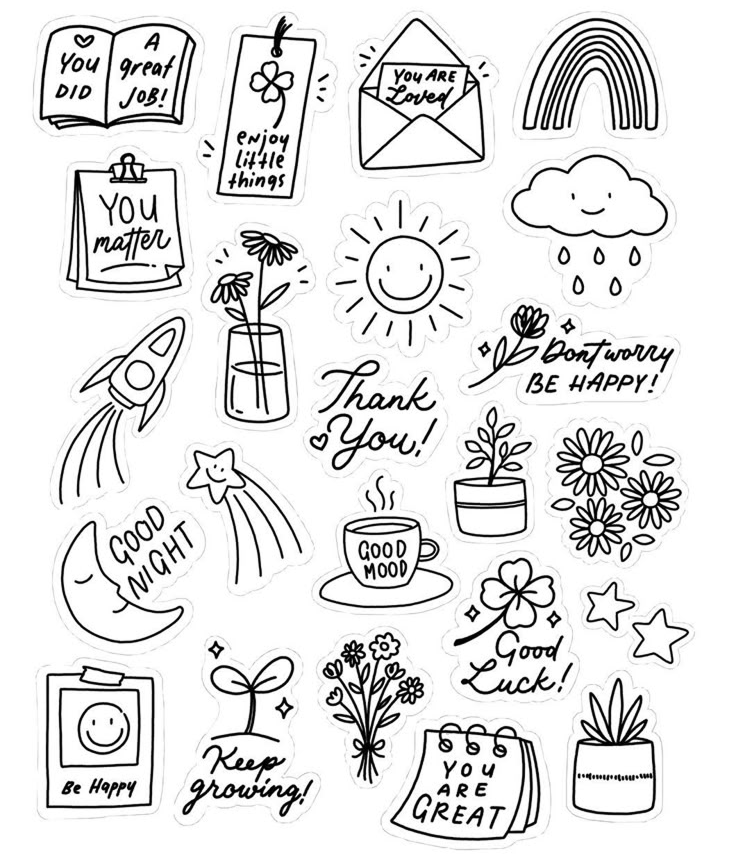 YOU
DID
A
great
JOB!
enjoy
little
things
YOU ARE
Loved
YOU
matter
Don't worry
BE HAPPY!
Thank
You!
GOOD
NIGHT
GOOD
MOOD
Good
Luck!
Be Happy
Keep
growing!
YOU
ARE
GREAT